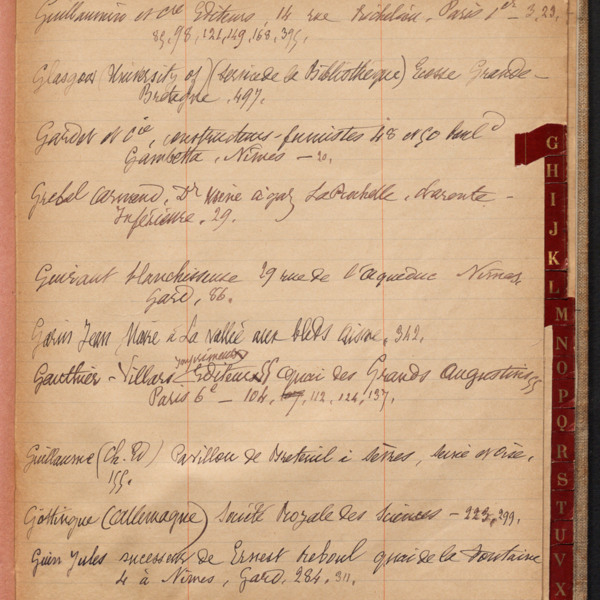 Guillaumin et Cie Editeurs, 14 rue Richelieu, Paris 1er — 3, 23,
85, 98, 121, 149, 168, 395,
Glasgow (University of) (Service de la Bibliothèque) Ecosse Grande-
Bretagne, 497.
Gardet et Cie, constructeurs-fumistes 48 et 50 bould
Gambetta, Nîmes — 20.
Grebel Armand, Dr Usine à gaz La Rochelle, Charente-
Inférieure, 29.
Guirant blanchisseuse 29 rue de l'aqueduc Nîmes,
Gard, 86.
Garin Jean Maire à La Vallée aux bleds Aisne, 342.
Imprimeurs
Gauthier-Villars Editeurs 55 quai des Grands Augustins 55
Paris 6e — 104, 112, 124, 137.
Guillaume (Ch. Ed) Pavillon de Breteuil à Sèvres, Seine et Oise,
155.
Göttingue (Allemagne) Société Royale des Sciences — 223, 299,
Guin Jules successeur de Ernest Reboul quai de la Fontaine
4 à Nîmes, Gard, 284, 311.
G
H
I
J
K
L
M
N
O
P
Q
R
S
T
U
V
X